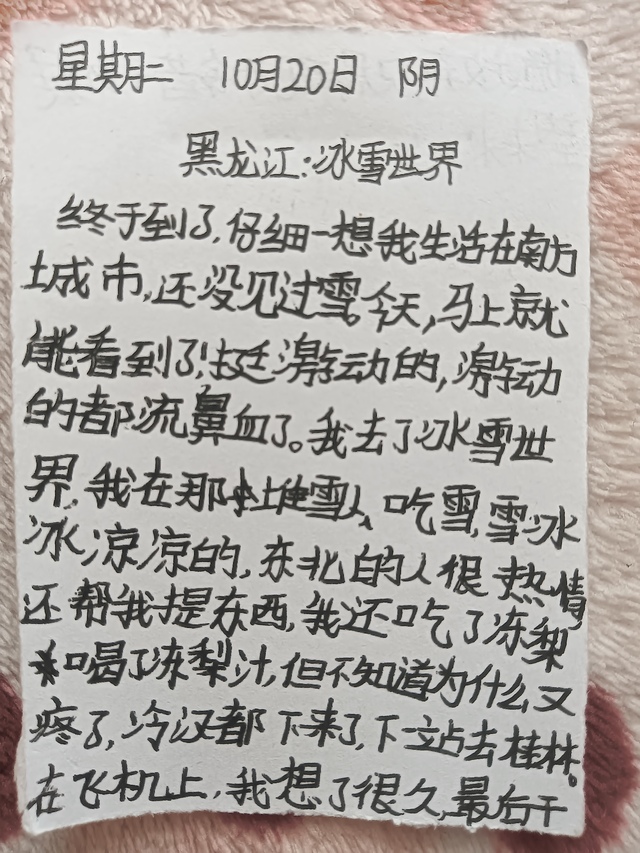 星期二 10月20日 阴
黑龙江:冰雪世界
终于到了,仔细一想我生活在南方
城市,还没见过雪。今天,马上就
能看到了!挺激动的,激动
的都流鼻血了。我去了冰雪世
界,我在那堆雪人、吃雪,雪冰
冰凉凉的,东北的人很热情
还帮我提东西,我还吃了冻梨
喝了冻梨汁,但不知道为什么又
疼了,冷汉都下来了,下一站去桂林。
在飞机上,我想了很久,最后干